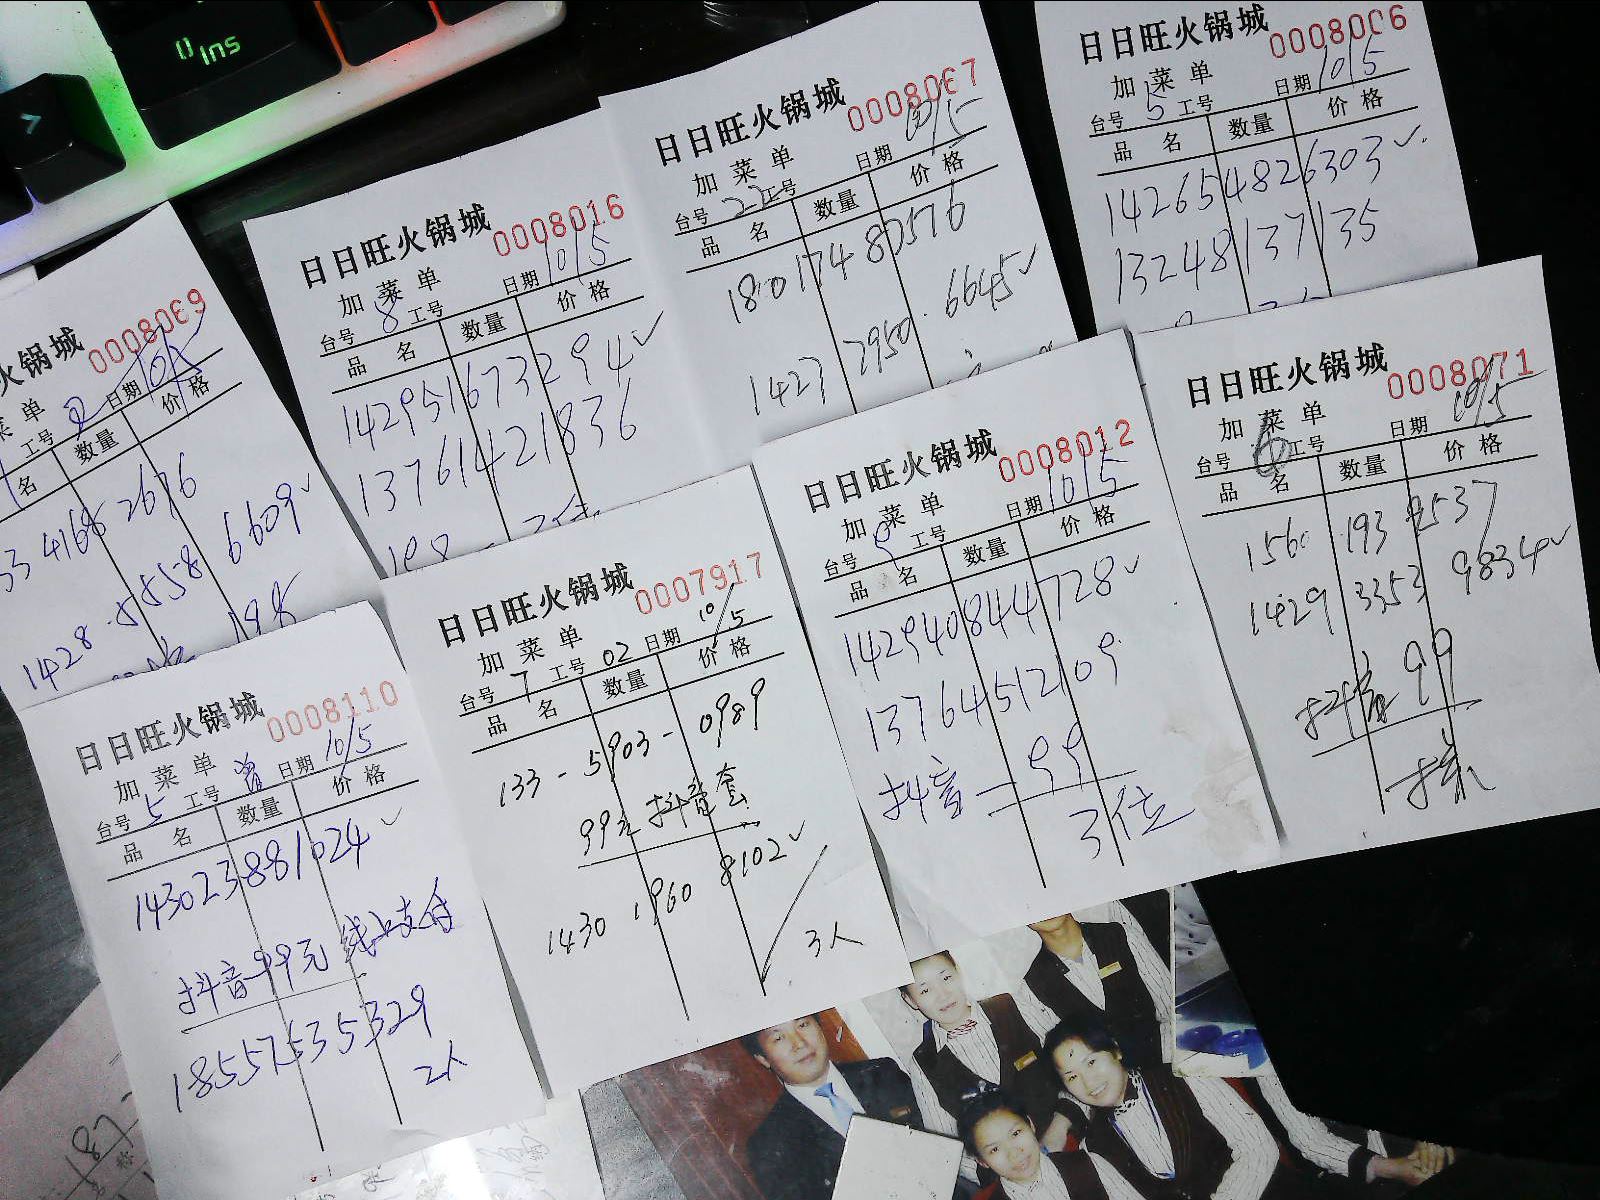 Ins
火锅城 0008069
菜单 日期 10/5
工号 2
名 数量 价格
33 4165 2676
1428 5558 6609
198
日日旺火锅城 0008016
加菜单
台号 8 工号 日期 10/5
品名 数量 价格
14295167329 4✓
13761421836
198
日日旺火锅城 0008067
加菜单
台号 22 工号 日期 10/5
品名 数量 价格
180 1748 0576
1423 2950 6645✓
日日旺火锅城 0008006
加菜单
台号 5 工号 日期 10/5
品名 数量 价格
142654826303✓
13248137135
日日旺火锅城 0008110
加菜单
台号 5 工号 日期 10/5
品名 数量 价格
143023881024✓
抖音99元 线上支付
18557535329
2人
日日旺火锅城 0007917
加菜单
台号 7 工号 02 日期 10/5
品名 数量 价格
133-5903-0989
99元抖音套
1430 1960 8102✓
3人
日日旺火锅城 0008012
加菜单
台号 8 工号 日期 10/5
品名 数量 价格
142940844728✓
13764512109
抖音-99
3位
日日旺火锅城 0008071
加菜单
台号 6 工号 日期 10/5
品名 数量 价格
156 193 2537
1429 3353 9834✓
抖音99